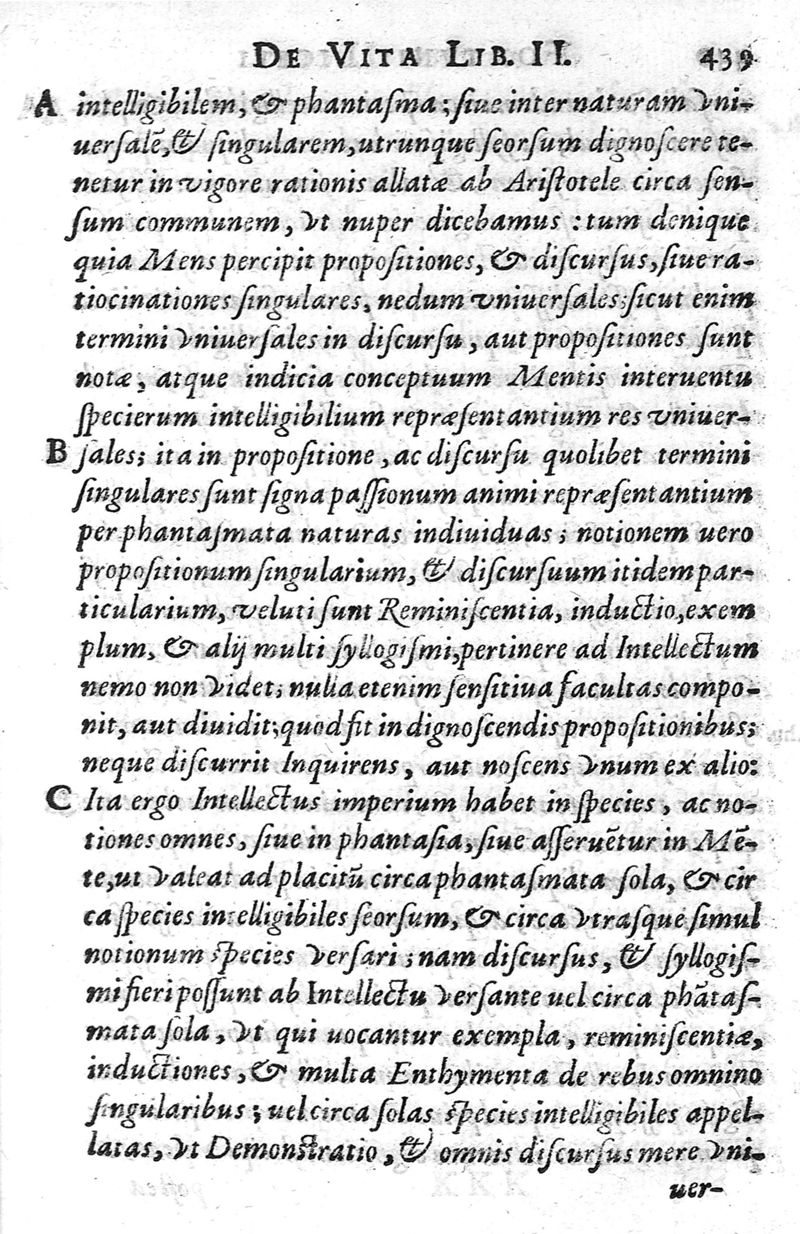 DE VITA LIB. II. 439
A intelligibilem, & phantasma; siue inter naturam vni-
uersalē, & singularem, utrunque seorsum dignoscere te-
netur in vigore rationis allatæ ab Aristotele circa sen-
sum communem, vt nuper dicebamus: tum denique
quia Mens percipit propositiones, & discursus, siue ra-
tiocinationes singulares, nedum vniuersales; sicut enim
termini vniuersales in discursu, aut propositiones sunt
notæ, atque indicia conceptuum Mentis interuentu
specierum intelligibilium repræsentantium res vniuer-
B sales; ita in propositione, ac discursu quolibet termini
singulares sunt signa passionum animi repræsentantium
per phantasmata naturas indiuiduas; notionem uero
propositionum singularium, & discursuum itidem par-
ticularium, veluti sunt Reminiscentia, inductio, exem
plum, & alij multi syllogismi, pertinere ad Intellectum
nemo non videt; nulla etenim sensitiua facultas compo-
nit, aut diuidit; quod fit in dignoscendis propositionibus;
neque discurrit Inquirens, aut noscens vnum ex alio:
C Ita ergo Intellectus imperium habet in species, ac no-
tiones omnes, siue in phantasia, siue asseruētur in Mē-
te, ut valeat ad placitū circa phantasmata sola, & cir
ca species intelligibiles seorsum, & circa vtrasque simul
notionum species versari; nam discursus, & syllogis-
mi fieri possunt ab Intellectu versante uel circa phātas-
mata sola, vt qui uocantur exempla, reminiscentiæ,
inductiones, & multa Enthymenta de rebus omnino
singularibus; uel circa solas species intelligibiles appel-
latas, vt Demonstratio, & omnis discursus mere vni-
uer-